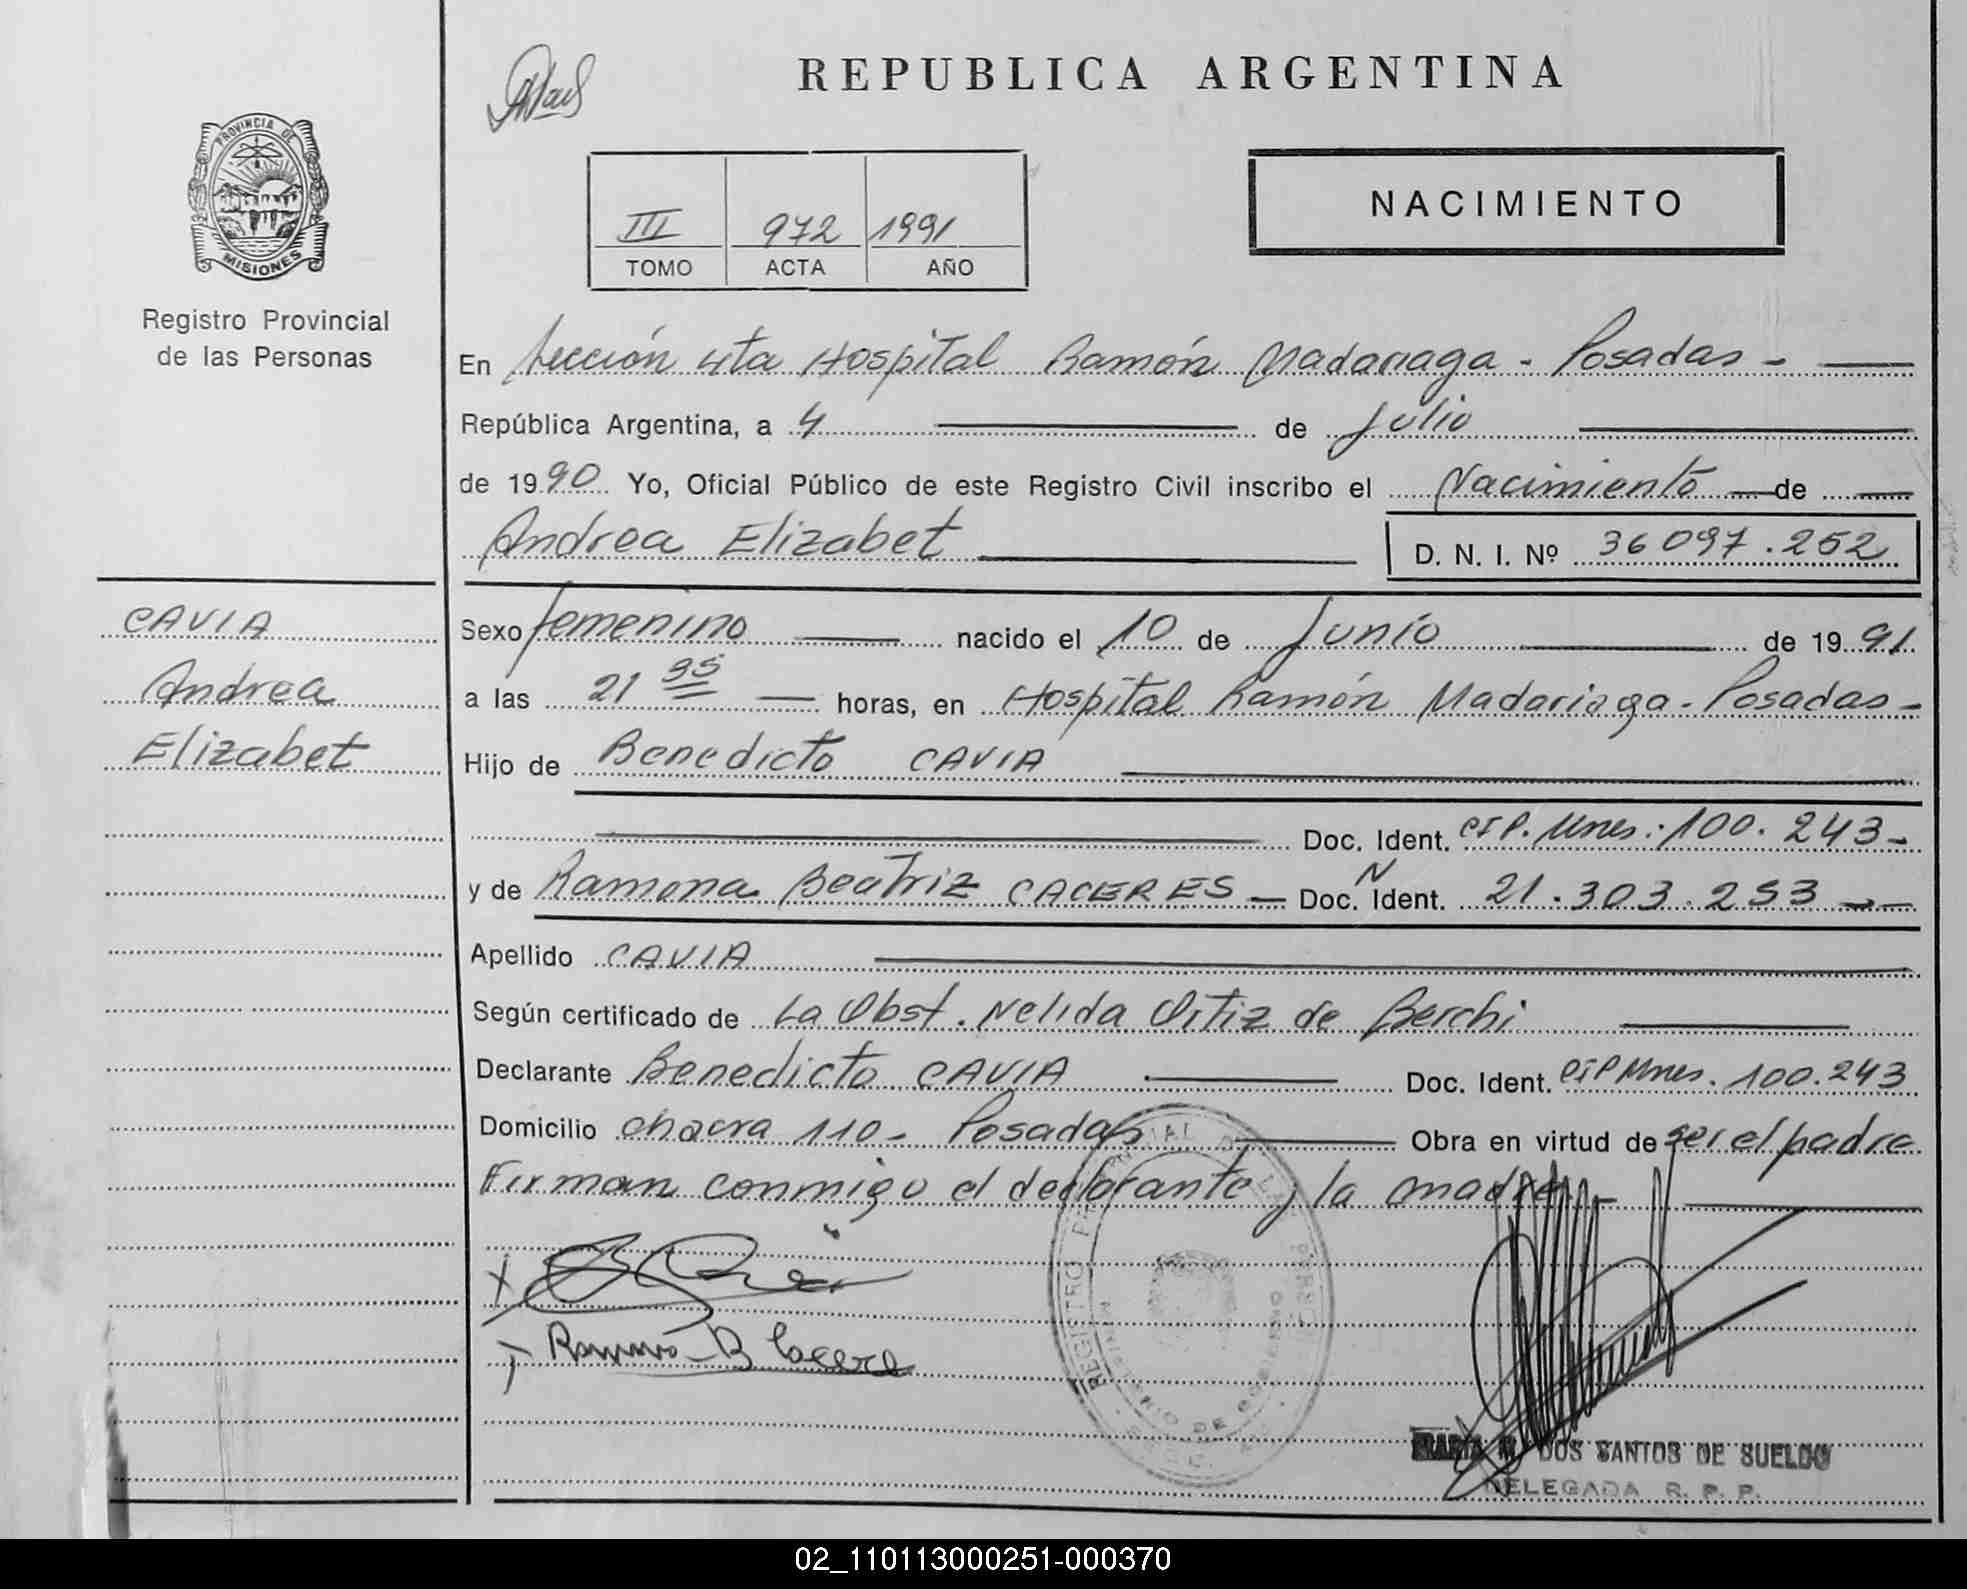 REPUBLICA ARGENTINA
PROVINCIA DE
MISIONES
Registro Provincial
de las Personas
III 972 1991
TOMO ACTA AÑO
NACIMIENTO
En Sección 4ta Hospital Ramón Madariaga - Posadas -
República Argentina, a 4 de Julio
de 1990 Yo, Oficial Público de este Registro Civil inscribo el Nacimiento de
Andrea Elizabet D. N. I. Nº 36097.252
CAVIA
Andrea
Elizabet
Sexo femenino nacido el 10 de Junio de 1991
a las 21 35 horas, en Hospital Ramón Madariaga - Posadas -
Hijo de Benedicto CAVIA
Doc. Ident. CIP. Mnes. 100.243 -
y de Ramona Beatriz CACERES - Doc. N Ident. 21.303.253 --
Apellido CAVIA
Según certificado de La Obst. Nelida Ortiz de Berchi
Declarante Benedicto CAVIA Doc. Ident. CIP Mnes. 100.243
Domicilio chacra 110 - Posadas Obra en virtud de ser el padre
Firman conmigo el declarante y la madre -
Ramona B Cacere
REGISTRO PROVINCIAL DE LAS PERSONAS
MINISTERIO DE GOBIERNO
MARIA DOS SANTOS DE SUELDO
DELEGADA R. P. P.
02_110113000251-000370